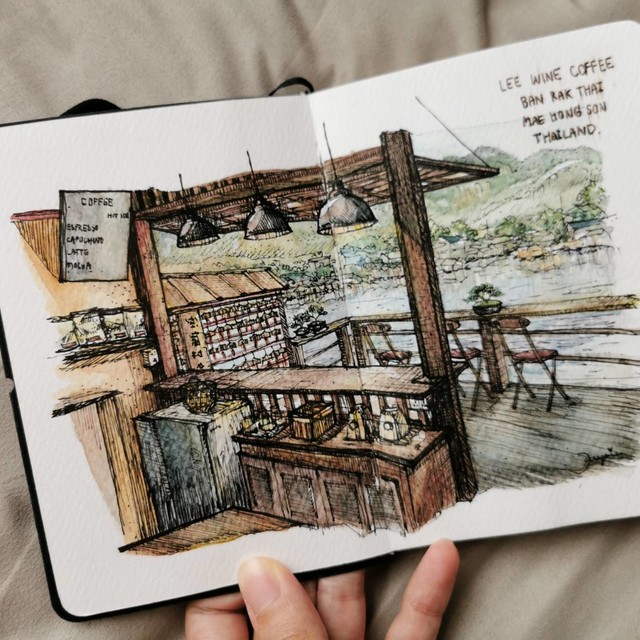 LEE WINE COFFEE
BAN RAK THAI
MAE HONG SON
THAILAND.
COFFEE
HOT ICE
ESPRESSO
CAPUCHINO
LATTE
MOCHA